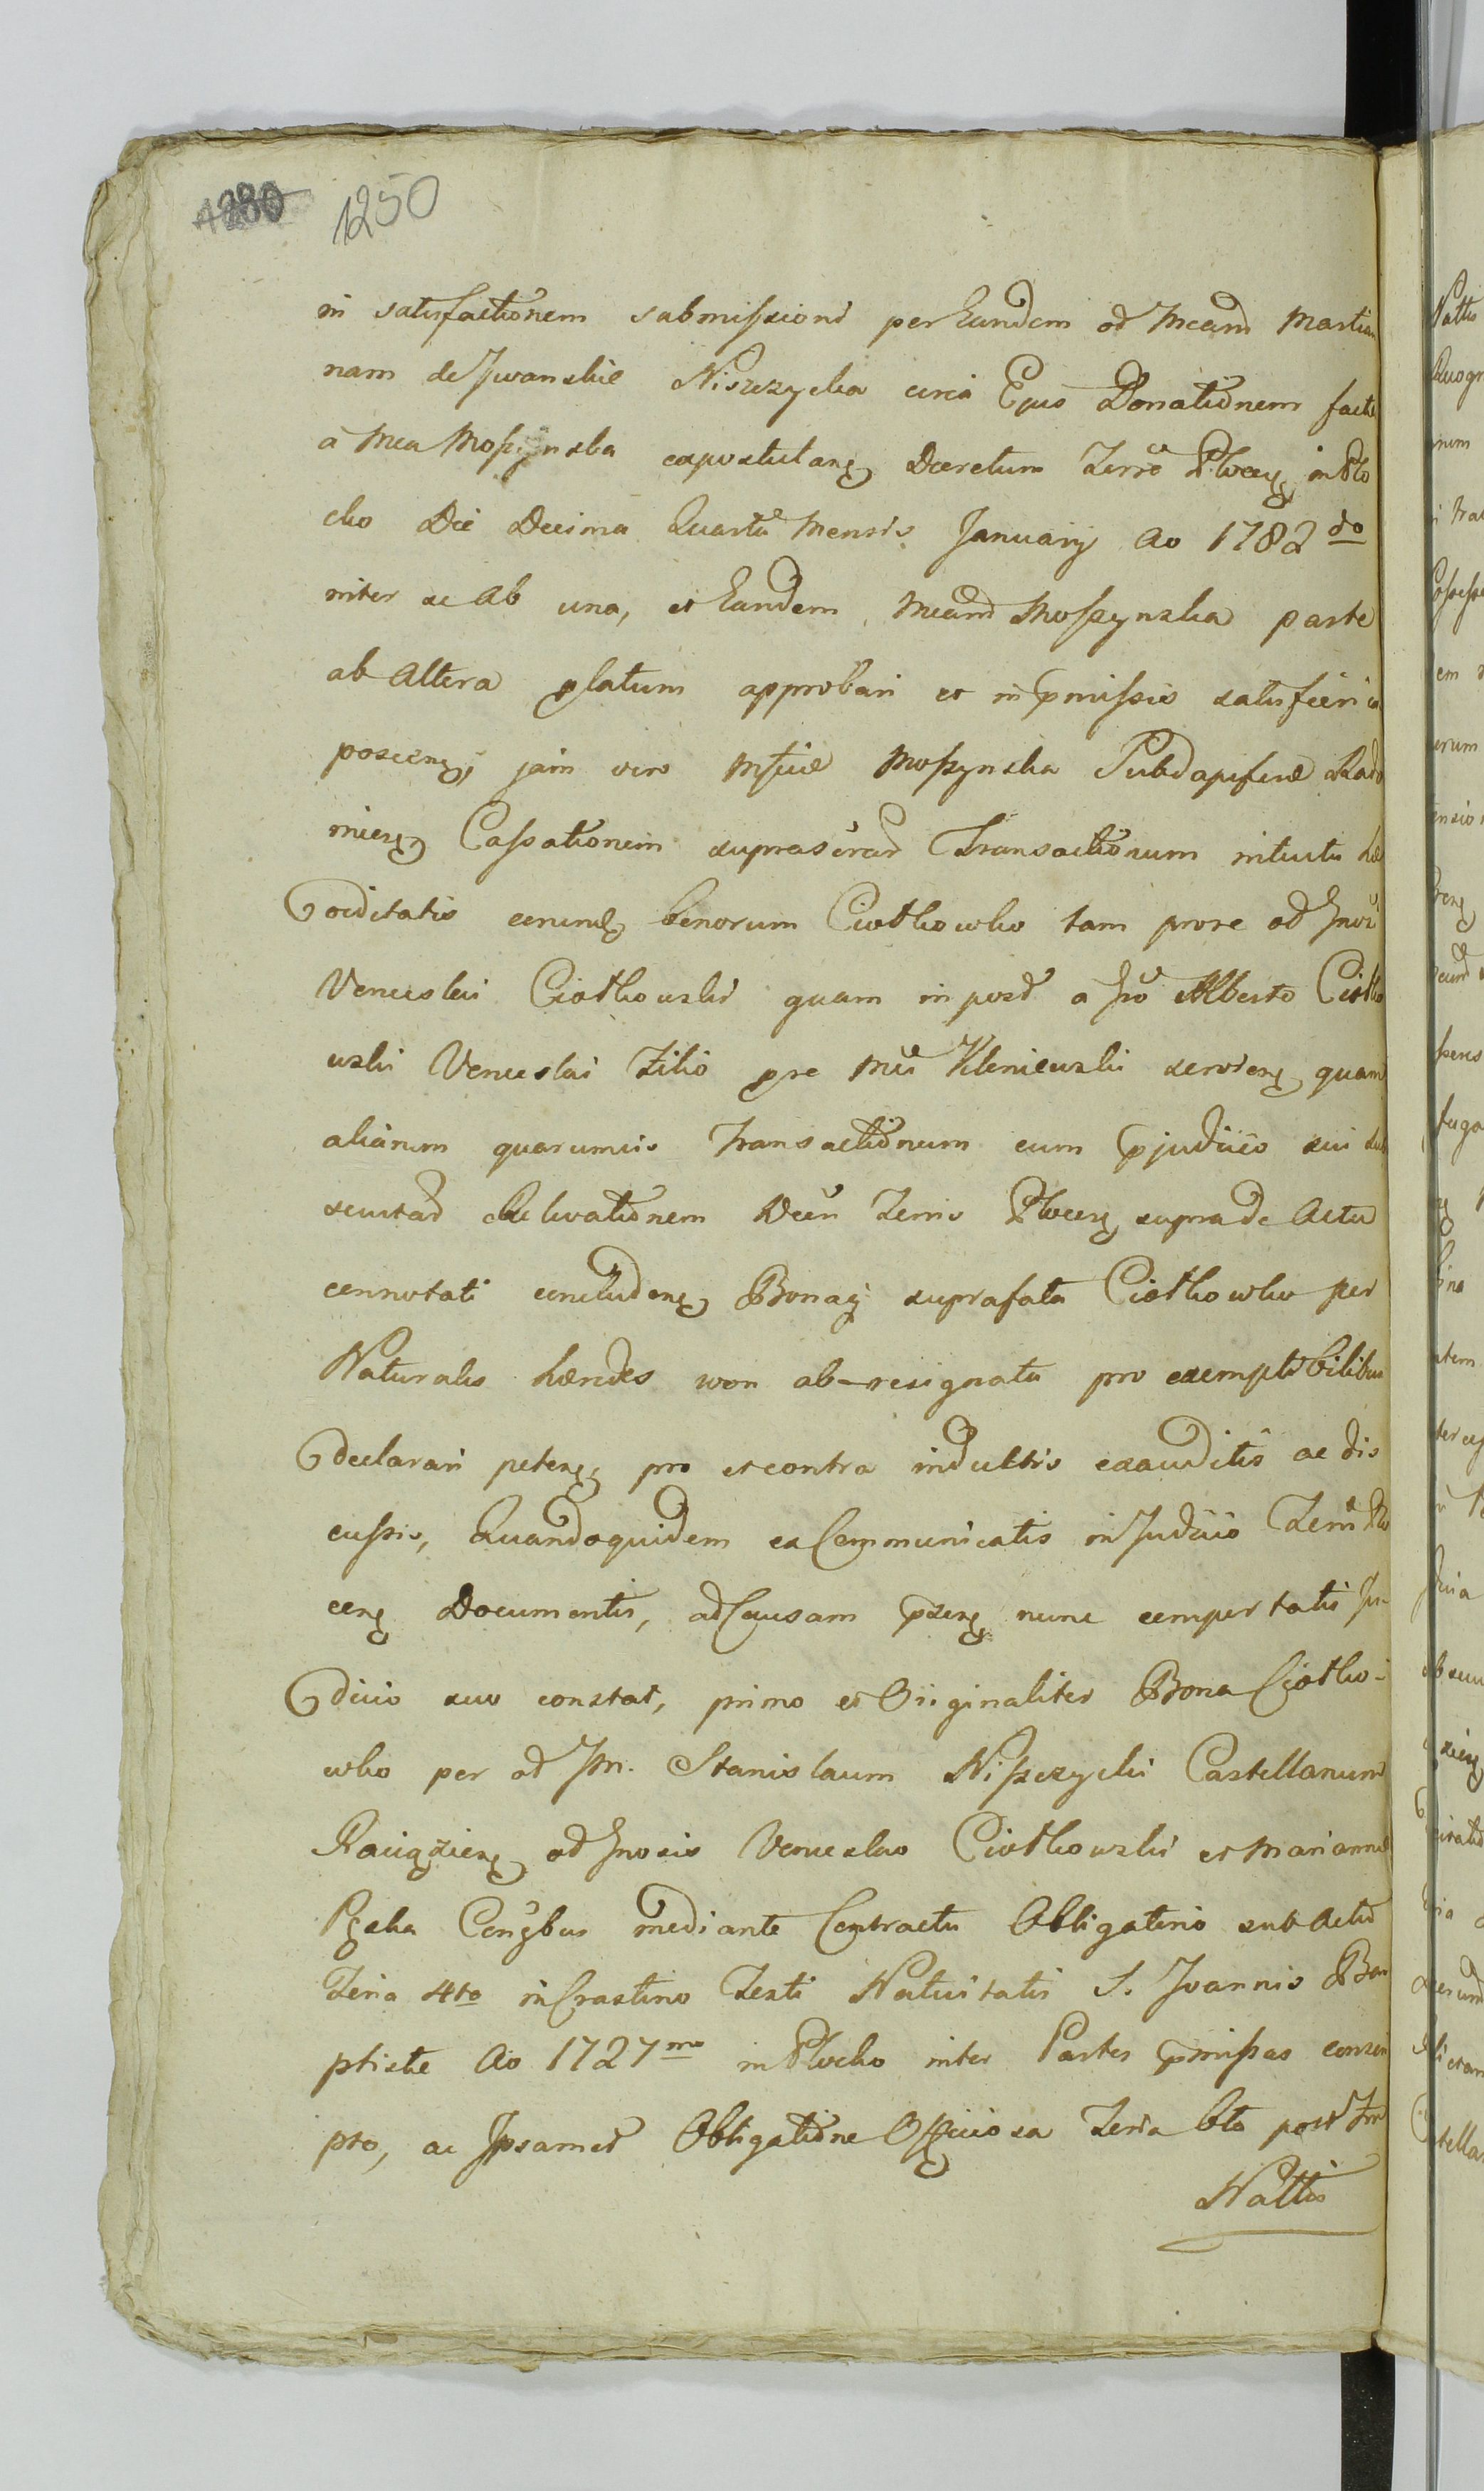 1250
in satisfactionem submissionis per Eandem od Mcam Martia
nam de Jwanskie Niszczycka circa Ejus Donationem facta
a Mca Moszynska expostulanę Decretum Terre Plocenę in Plo
cko Die Decima Quarta Mensis January Ao 1782do
inter se ab una, et Eandem Mcam Moszynska parte
ab Altera platum approbari et in pmissis satisfieri
poscenę, jam vero Mficæ Moszynska Subdapiferæ Rado
mienę Cassationem suprascrar Transactionum intuitu hæ
reditatis eorumdę bonorum Ciotkowko tam prore od Gnoi
Venceslai Ciotkowski quam in post a Gno Alberto Ciotko
wski Venceslai Filio pre Mci Kleniewski servienę quam
aliarum quarumvis Transactionum cum pjudicio sui
secutar Relevationem Decti Terris Plocenę supra de Actu
connotati concludenę Bonaq suprafata Ciotkowko per
Naturales hæredes non ab-resignata pro exemptibilibus
declarari petenę, pro et contra inductis exauditis ac dis
cussis, Quandoquidem ex Communicatis in Judicio Terri Plo
cenę Documentis, ad Causam pzenę nunc comportatis Ju-
dicio suo constat, primo et Originaliter Bona Ciotko-
wko per od Jm. Stanislaum Niszczycki Castellanum
Raciązienę od Gnosis Venceslao Ciotkowski et Marianna
Ręska Conjbus mediante Contractu Obligatorio sub Actu
Feria 4to in Crastino Festi Nativitatis S. Joannis Ba
ptistæ Ao 1727mo in Plocko inter Partes pmissas
pto, ac Ipsamet Obligatione Officiosa Feria 6to post
Nattis